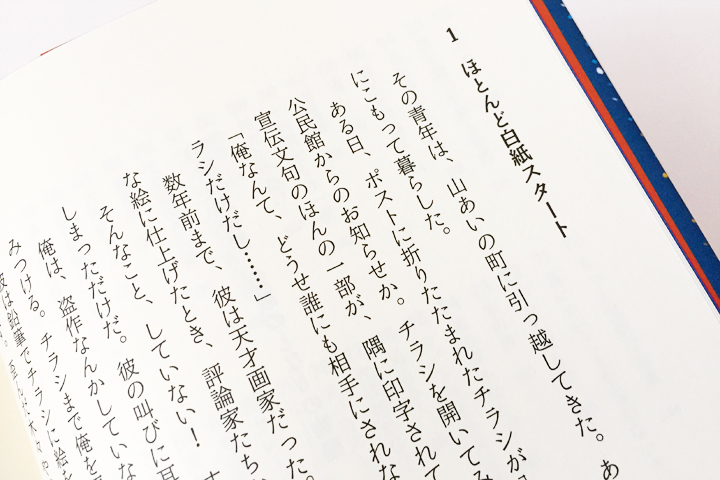 1 ほとんど白紙スタート
その青年は、山あいの町に引っ越してきた。あ
にこもって暮らした。
ある日、ポストに折りたたまれたチラシが
公民館からのお知らせか。チラシを開いてみ
宣伝文句のほんの一部が、隅に印字されて
「俺なんて、どうせ誰にも相手にされな
ラシだけだし……」
数年前まで、彼は天才画家だった。
な絵に仕上げたとき、評論家たちか
そんなこと、していない！
しまっただけだ。彼の叫びに耳
俺は、盗作なんかしていな
みつける。チラシまで俺を
彼は鉛筆でチラシに絵を